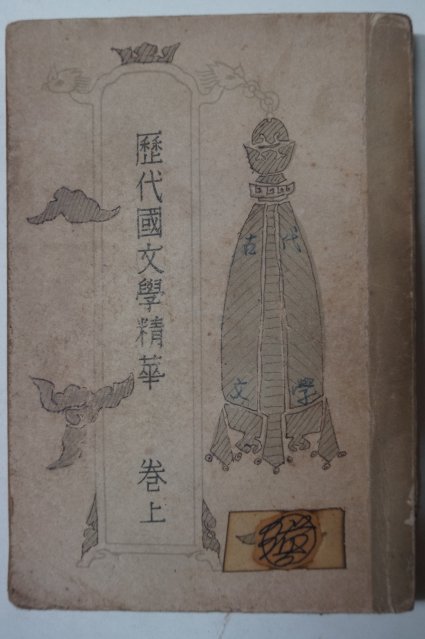 歷代國文學精華 卷上
古代
文学